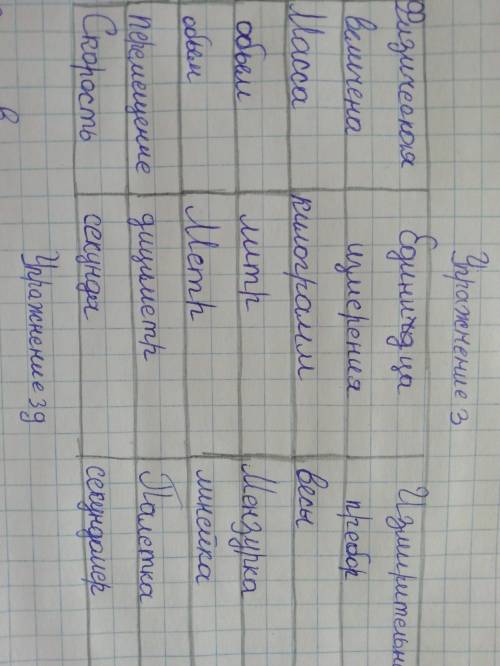 Упражнение 3
Физическая величена Единица измерения Измирительн прибор
Масса килограмм весы
объем литр Мензурка
объем Метр линейка
перемещение дициметр Палетка
Скорость секунда секундомер
Упражнение 3д
в